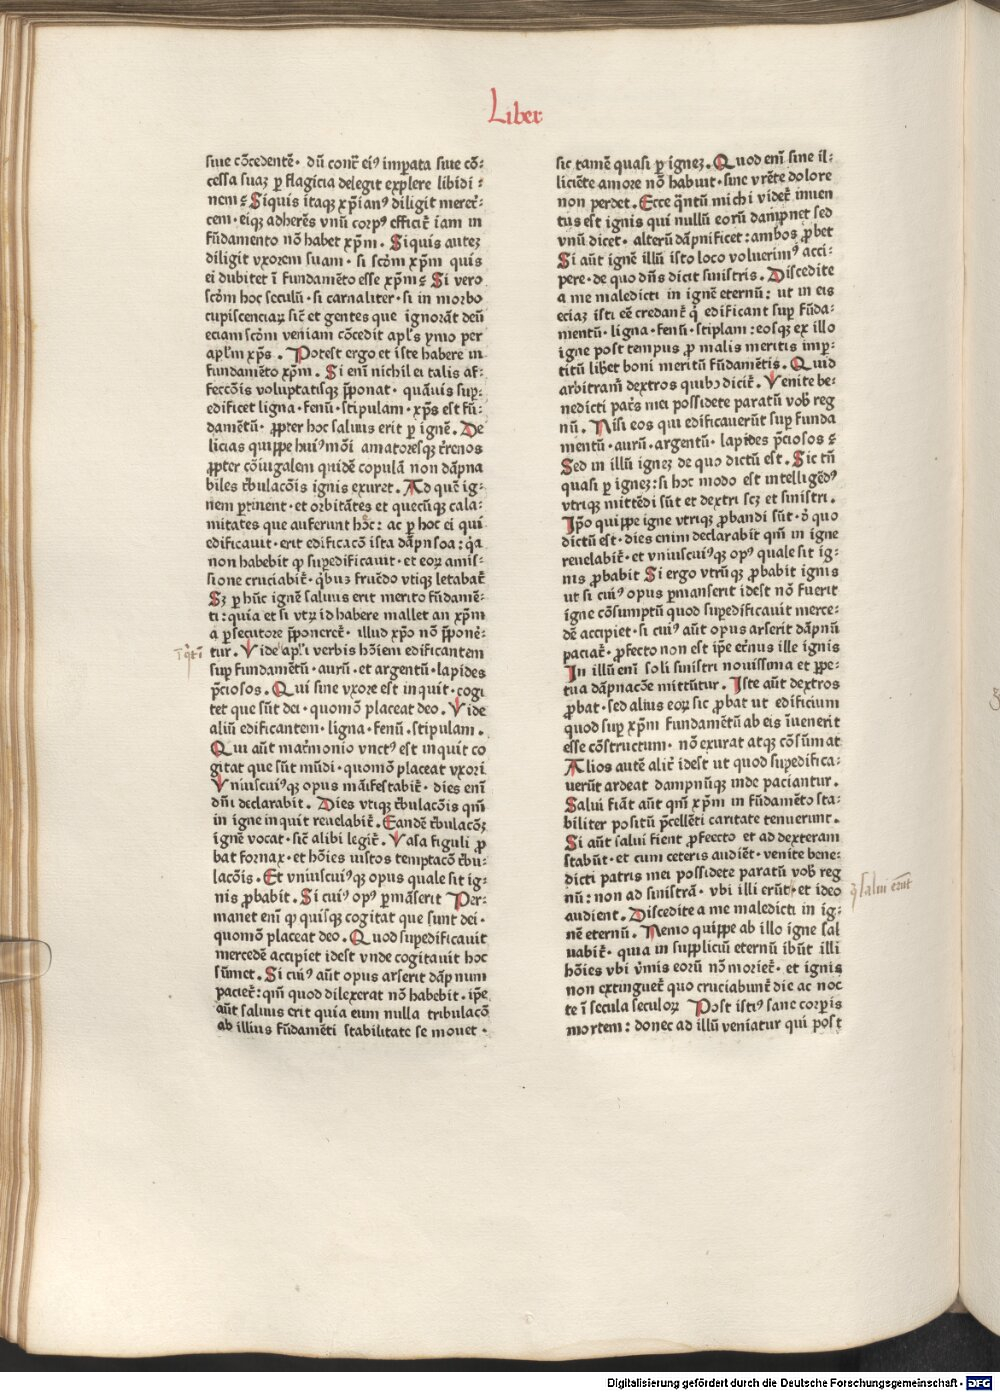 Liber
siue cōcedentē· dū contͣ eiꝰ imꝑata siue cō⸗
cessa suaꝫ ꝑ flagicia delegit explere libidi⸗
nem⸮ Siquis itaqꝫ xp̄ianꝰ diligit meret⸗
cem· eiqꝫ adherēs vnū corpꝰ efficit̄ iam in
fūdamento nō habet xp̄m. Siquis auteꝫ
diligit vxorem suam· si scd̄m xp̄m quis
ei dubitet ī fundamēto esse xp̄m⸮ Si vero
scd̄m hoc seculū· si carnaliter· si in morbo
cupiscenciaꝝ sic̄ et gentes que ignorāt deū
eciam scd̄m veniam cōcedit apl̄s ymo per
apl̄m xp̄s. Potest ergo et iste habere in
fundamēto xp̄m. Si eni nichil ei talis af⸗
fecc̄ōis voluptatisqꝫ p̄ponat· quāuis suꝑ⸗
edificet ligna· fenū· stipulam· xp̄s est fū⸗
damētū· ꝓpter hoc saluus erit ꝑ ignē. De
licias quippe huiꝰmōi amatoresqꝫ t̄renos
ꝓpter cōiugalem quidē copulā non dāpna
biles t̄bulac̄ōis ignis exuret. Ad quē ig⸗
nem ꝑtinent· et orbitātes et quecūqꝫ cala⸗
mitates que auferunt hec̄: ac ꝑ hoc ei qui
edificauit· erit edificac̄o ista dāpnosa: qͥa
non habebit qͦ suꝑedificauit· et eoꝝ amis⸗
sione cruciabit̄· qͥbus fruēdo vtiqꝫ letabat̄
Sꝫ ꝑ hūc ignē saluus erit merito fūdamē⸗
ti: quia et si vtꝝ id habere mallet an xp̄m
a ꝑsecutore p̄poneret̄· illud xp̄o nō p̄pone⸗
tur. Vide apl̄i verbis hōiem edificantem
suꝑ fundamētū· aurū· et argentū· lapides
p̄ciosos. Qui sine vxore est inquit· cogi
tet que sūt dei· quomō placeat deo. Vide
aliū edificantem· ligna· fenū· stipulam.
Qui aūt mat̄monio vnctꝰ est inquit co
gitat que sūt mūdi· quomō placeat vxori
Vniuscuiꝰqꝫ opus māifestabit̄· dies enī
dn̄i declarabit. Dies vtiqꝫ t̄bulac̄ōis qm̄
in igne inquit reuelabit̄. Eandē t̄bulac̄oꝫ
ignē vocat· sic̄ alibi legit̄. Vasa figuli ꝓ
bat fornax· et hōies iustos temptac̄o t̄bu⸗
lac̄ōis. Et vniuscuiꝰqꝫ opus quale sit ig⸗
nis ꝓbabit. Si cuiꝰ opꝰ ꝑmāserit Per⸗
manet enī qͦ quisqꝫ cogitat que sunt dei·
quomō placeat deo. Quod suꝑedificauit
mercedē accipiet idest vnde cogitauit hoc
sūmet. Si cuiꝰ aūt opus arserit dāpnum
paciet̄: qm̄ quod dilexerat nō habebit· ip̄e
aūt saluus erit quia eum nulla tribulac̄o
ab illius fūdamēti stabilitate se mouet·
sic tamē quasi ꝑ igneꝫ. Quod enī sine il⸗
liciēte amore nō habuit· sine vrēte dolore
non perdet. Ecce qͣntū michi videt̄ inuen
tus est ignis qui nullū eorū dampnet sed
vnū ditet· alterū dāpnificet: ambos ꝓbet
Si aūt ignē illū isto loco voluerimꝰ acci⸗
pere· de quo dn̄s dicit sinistris. Discedite
a me maledicti in ignē eternū: ut in eis
eciaꝫ isti eē credant̄ qͥ edificant suꝑ fūda⸗
mentū· ligna· fenū· stiplam: eosqꝫ ex illo
igne post tempus ꝓ malis meritis imꝑ⸗
titū liberet boni meritū fūdamētis. Quid
arbitram̄ dextros quibꝰ dicit̄. Venite be⸗
nedicti patr̄s mei possidete paratū vob̄ reg
nū. Nisi eos qui edificauerūt suꝑ funda
mentū· aurū· argentū· lapides p̄ciosos⸮
Sed in illū igneꝫ de quo dictū est. Sic tn̄
quasi ꝑ igneꝫ: si hoc modo est intelligēdꝰ
vtriqꝫ mittēdi sūt et dextri scꝫ et sinistri.
Ip̄o quippe igne vtriqꝫ ꝓbandi sūt· d̄ quo
dictū est· dies enim declarabit qm̄ in igne
reuelabit̄· et vniuscuiꝰqꝫ opꝰ quale sit ig⸗
nis ꝓbabit Si ergo vtrūqꝫ ꝓbabit ignis
ut si cuiꝰ opus ꝑmanserit idest nō fuerit
igne cōsumptū quod suꝑedificauit merce⸗
dē accipiet· si cuiꝰ aūt opus arserit dāpnū
paciat̄· ꝓfecto non est ip̄e et̄nus ille ignis
In illū enī soli sinistri nouissima et ꝑpe⸗
tua dāpnac̄oe mittūtur. Iste aūt dextros
ꝓbat· sed alius eoꝝ sic ꝓbat ut edificium
quod suꝑ xp̄m fundamētū ab eis īuenerit
esse cōstructum· nō exurat atqꝫ cōsūmat
Alios autē alit̄ idest ut quod suꝑedifica⸗
uerūt ardeat dampnūqꝫ inde paciantur.
Salui fiāt aūt qm̄ xp̄m in fūdamēto sta⸗
biliter positū p̄cellēti caritate tenuerunt.
Si aūt salui fient ꝓfecto et ad dexteram
stabūt· et cum ceteris audiēt· venite bene⸗
dicti patris mei possidete paratū vob̄ reg
nū: non ad sinistrā· vbi illi erūt· et ideo
audient. Discedite a me maledicti in ig⸗
nē eternū. Nemo quippe ab illo igne sal
uabit̄· quia in suppliciū eternū ibūt illi
hōies vbi v̄mis eorū nō moriet̄· et ignis
non extinguet̄ quo cruciabunt̄ die ac noc
te ī secula seculoꝝ Post istiꝰ sane corꝑis
mortem: donec ad illū veniatur qui post
qͥ salui erūt